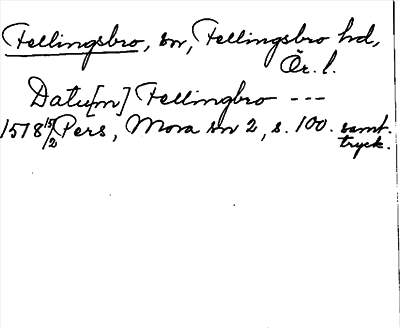 Fellingsbro, sn, Fellingsbro hd,
Ör. l.
Datu[m] Fellingbro ---
1578 15/2 Pers, Mora sn 2, s. 100. samt.
tryck.